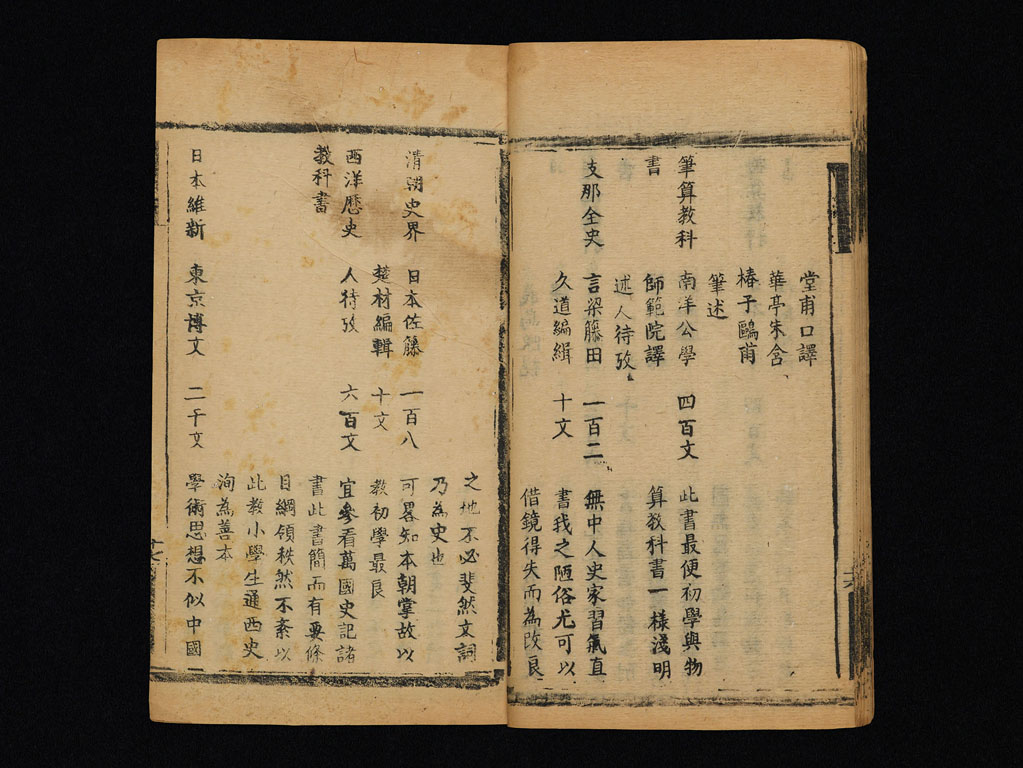 堂甫口譯
華亭朱含
椿子鷗甫
筆述
筆算教科
南洋公學
四百文
此書最便初學與物
書
師範院譯
算教科書一樣淺明
述人待攷
支那全史
言梁籐田
一百二
無中人史家習氣直
久道編緝
十文
書我之陋俗尤可以
借鏡得失而為改良
之地不必斐然文詞
乃為史也
清朝史畧
日本佐籐
一百八
可畧知本朝掌故以
楚材編輯
十文
教初學最良
西洋歷史
人待攷
六百文
宜參看萬國史記諸
教科書
書此書簡而有要條
目綱領秩然不紊以
此教小學生通西史
洵為善本
日本維新
東京博文
二千文
學術思想不似中國